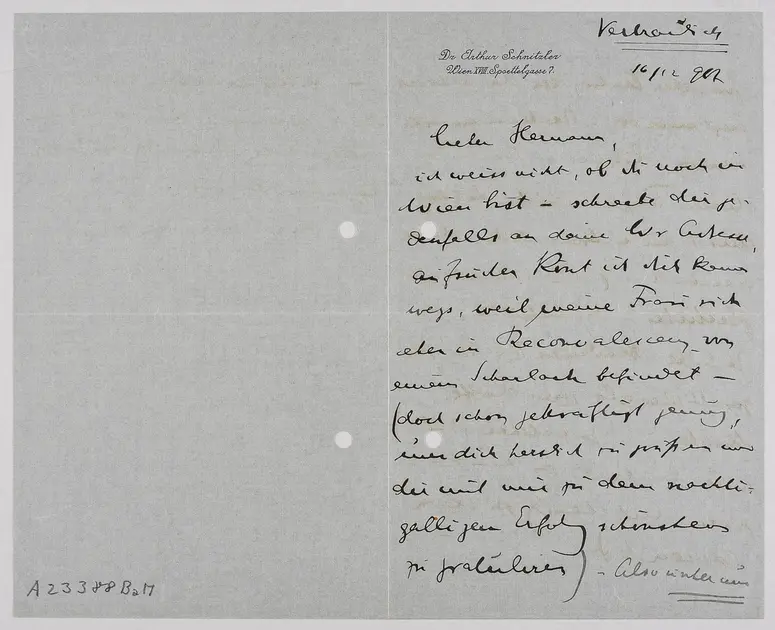 Vertraulich
Dr Arthur Schnitzler
Wien XVIII. Spoettelgasse 7.
16/12 907
lieber Hermann,
ich weiss nicht, ob du noch in
Wien bist – schreibe dir je-
denfalls an deine Wr Adresse,
aufsuchen könt ich dich keines
wegs, weil meine Frau sich
eben in Reconvalescenz von
einem Scharlach befindet –
(doch schon gekräftigt genug,
um dich herzlich zu grüßen und
dir mit mir zu dem nachti-
galligen Erfolg schönstens
zu gratuliren) – Also unter uns
A 23388 BaM